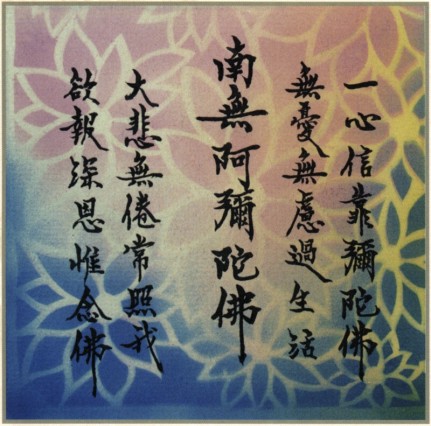 一心信靠彌陀佛
無憂無慮過生活
南無阿彌陀佛
大悲無倦常照我
欲報深恩惟念佛